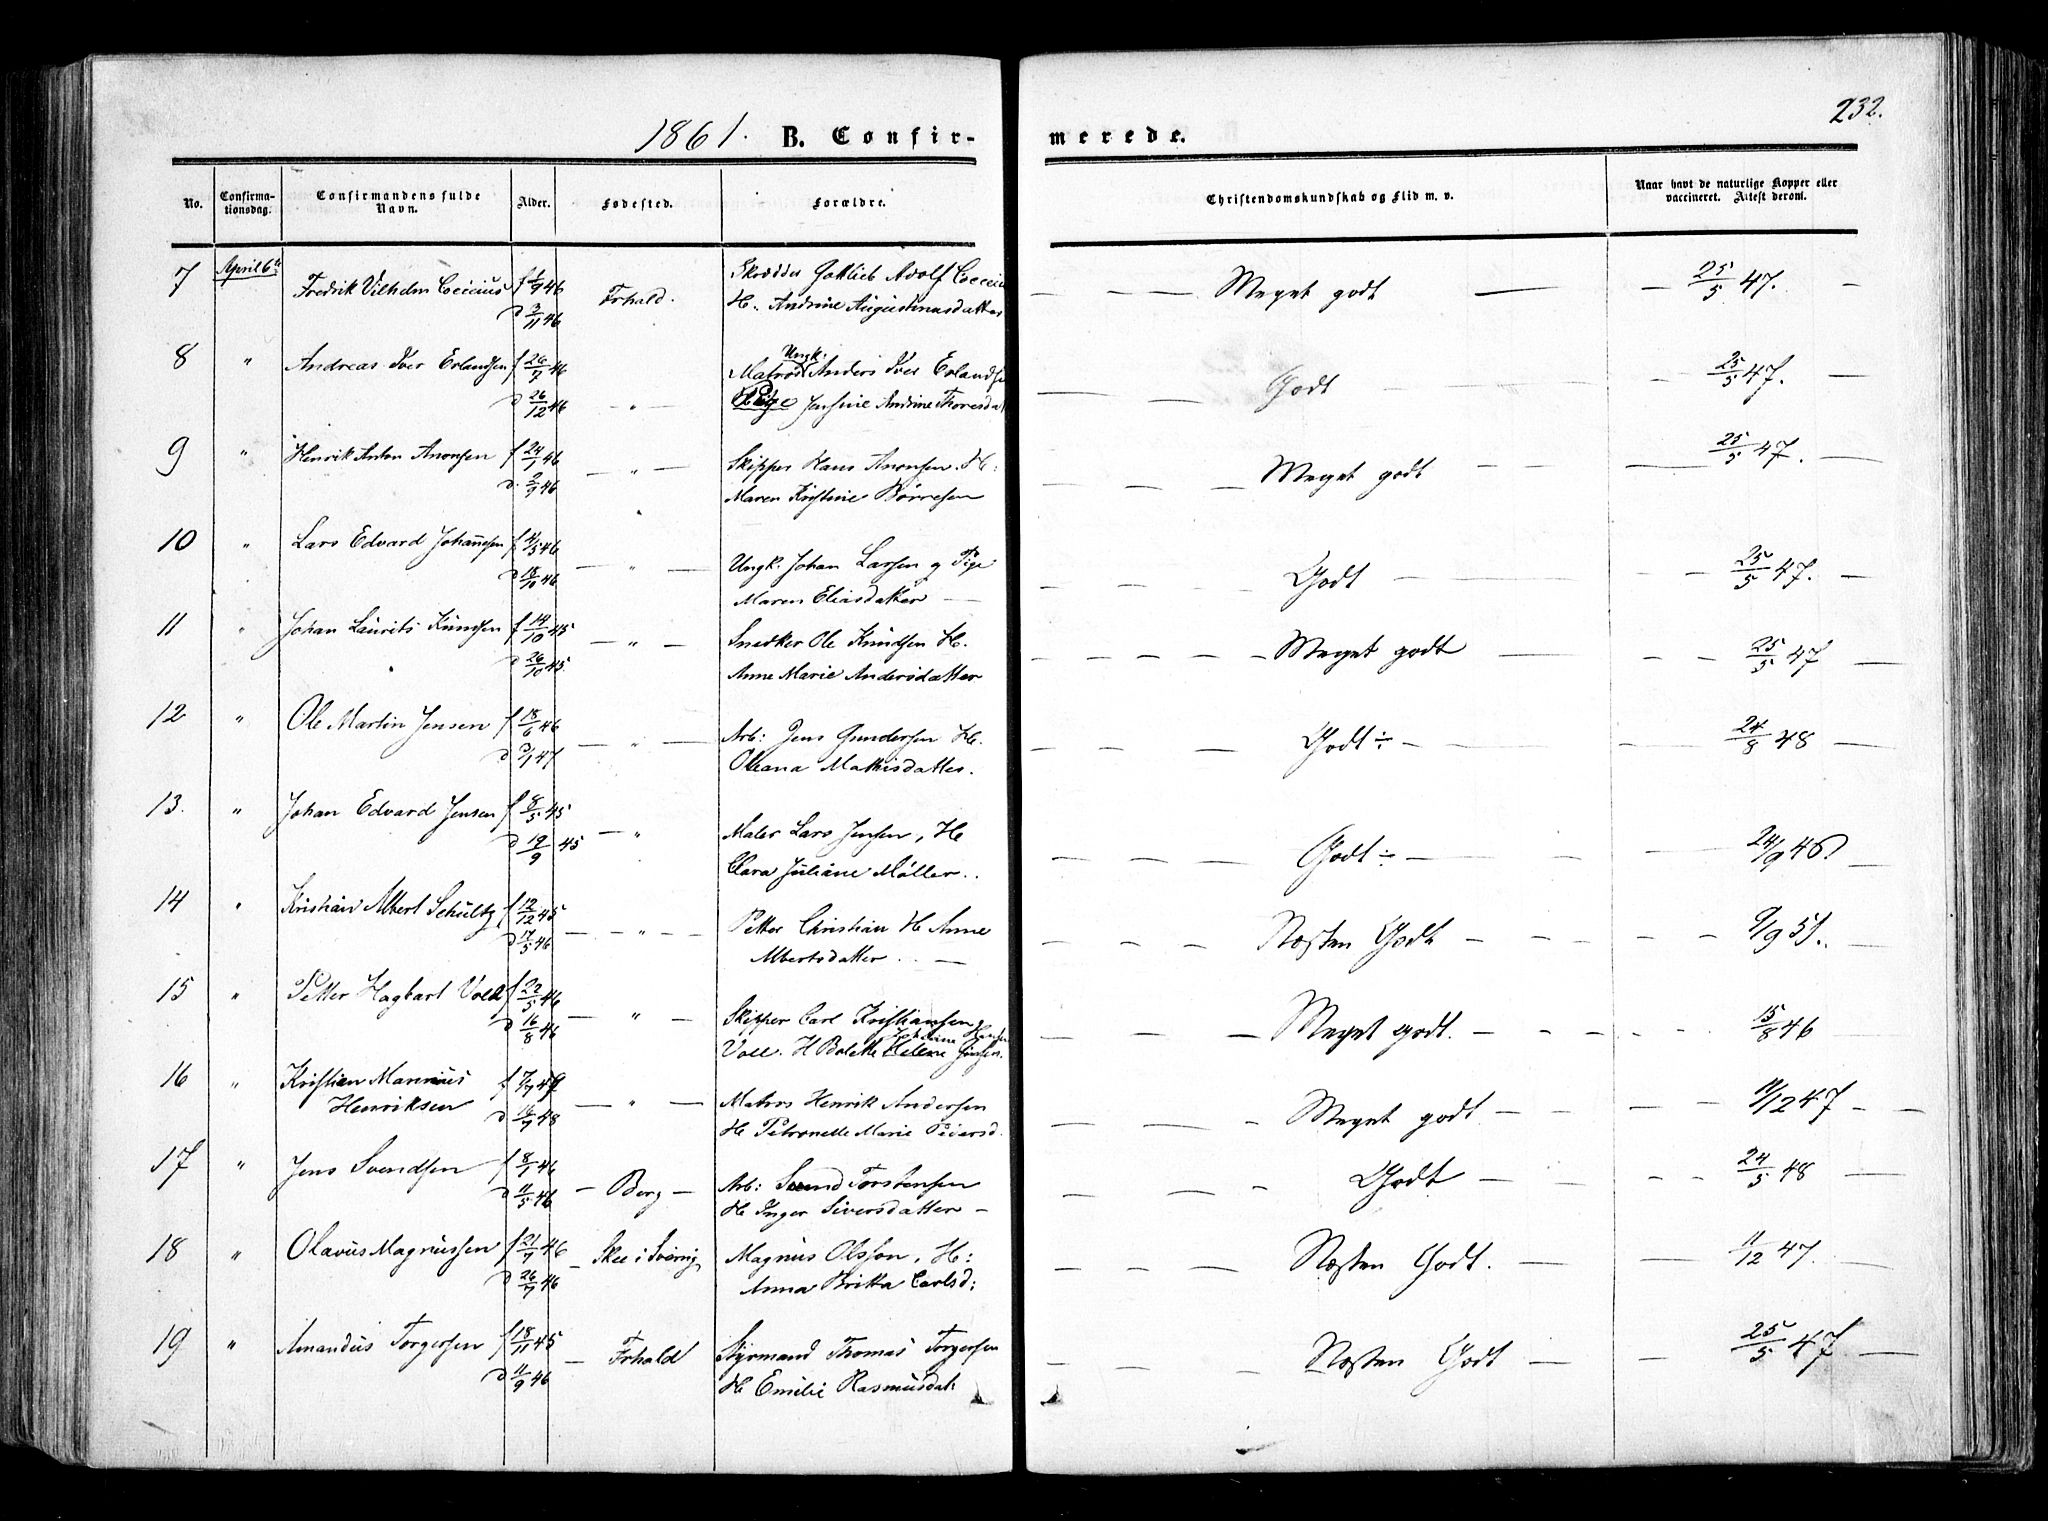 232.
1861. B. Confirmerede.
No. Confirmationsdag. Confirmandens fulde Navn. Alder. Fødested. Forældre. Christendomskundskab og Flid m. v. Naar havt de naturlige Kopper eller vaccineret. Attest derom.
7 April 6te Fredrik Vilhelm Ceicius f 1/9 46 Frhald. Skrædder Gottlieb Adolf Ceicius Meget godt 25/5 47.
d 2/11 46 H. Andrine Augustinusdatter
8 " Andreas Iver Erlandsen f 26/9 46 Ungk. Matros Anders Iver Erlandsen Godt 25/5 47.
d 26/12 46 " Pige Jensine Andrine Thoresdat
9 " Henrik Anton Aronsen f 24/1 46 " Skipper Hans Aronsen. H: Meget godt 25/5 47.
d. 2/9 46 Maren Kristine Børresen
10 " Lars Edvard Johannesen f 4/5 46 " Ungk. Johan Larsen og Pige Godt 25/5 47.
d 18/10 46 Maren Eliasdatter
11 " Johan Laurits Knudsen f 14/10 45 " Snedker Ole Knudsen H. Meget godt 25/5 47
d 26/10 45. Anne Marie Andersdatter
12 " Ole Martin Jensen f 18/6 46 " Arb: Jens Gundersen H. Godt ÷ 24/8 48
d 3/1 47 Oleana Mathisdatter.
13. " Johan Edvard Jensen f 8/5 45 " Maler Lars Jensen, H Godt ÷ 24/9 46.
d 19/9 45 Clara Juliane Møller..
14 " Kristian Albert Schultz f 12/12 45 " Petter Christian H Anne Næsten Godt 9/9 51.
d 17/5 46 Albertsdatter
15 " Petter Hagbart Voll f 22/5 46 " Skipper Carl Kristiansen Meget godt. 15/8 46
d 16/8 46 Voll. H Bolette Helene
16 " Kristian Marinius f 7/9 47 Matros Henrik Andersen Meget godt 11/12 47
Henriksen d 16/7 48 " H Petronelle Marie Peiersd.
17 " Jens Svendsen f 8/1 46 Berg Arb: Svend Torstensen Godt 24/5 48
d 11/5 46 H Inger Siversdatter
18 " Olavus Magnussen f 21/7 46 Skee i Sverrig Magnus Olsson, H: Næsten Godt. 11/12 47.
d 26/7 46 Anna Britta Carlsd:
19 " Amandus Torgersen f 18/11 45 Frhald Styrmand Thomas Torgersen Næsten Godt 25/5 47
d 11/9 46 H Emilie Rasmusdat